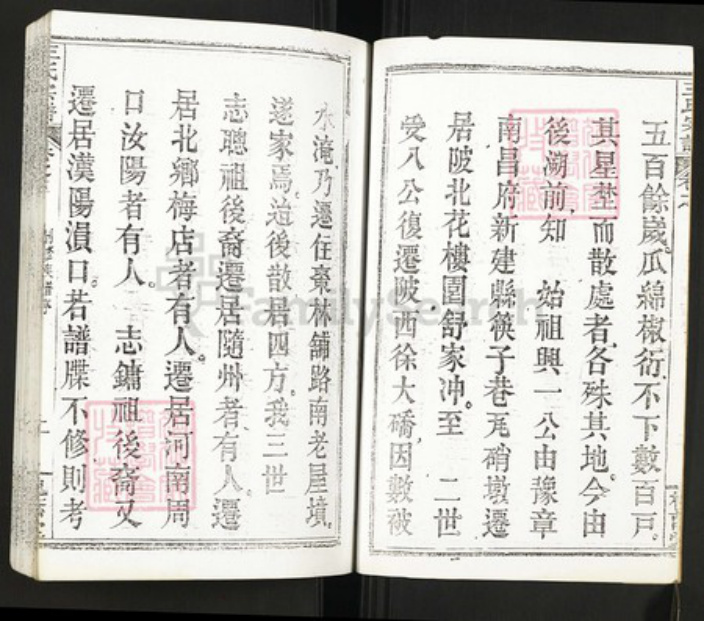 五百餘歲。瓜綿椒衍不下數百戸。
其星埜而散處者各殊其地。今由
後溯前知 始祖興一公由豫章
南昌府新建縣筷子巷瓦硝墩遷
居陂北花樓園舒家冲。至 二世
受八公復遷陂西徐大礄因數被
水淹乃遷住棗林舖路南老屋墳。
遂家焉。迨後散居四方。我三世
志聰祖後裔遷居隨州者有人。遷
居北鄉梅店者有人。遷居河南周
口汝陽者有人。 志鏞祖後裔又
遷居漢陽溳口。若譜牒不修則考
FamilySearch